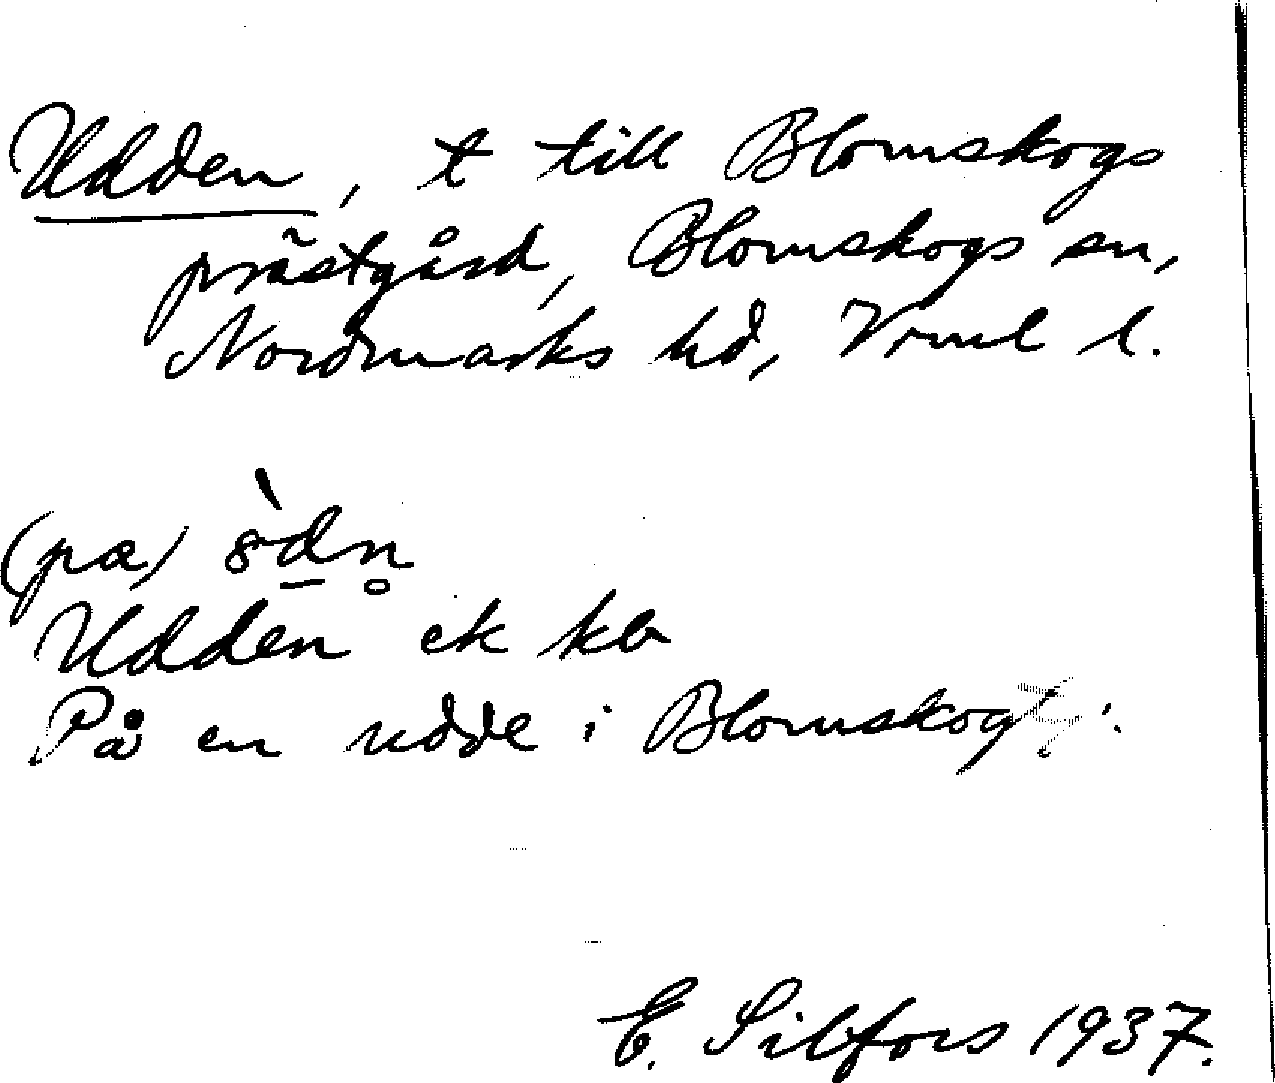 Udden, t till Blomskogs
prästgård, Blomskogs sn,
Nordmarks hd, Vrml l.
(pα) 8̀d̲n̥
Udden ek kb
På en udde i Blomskog
E. Silfors 1937.